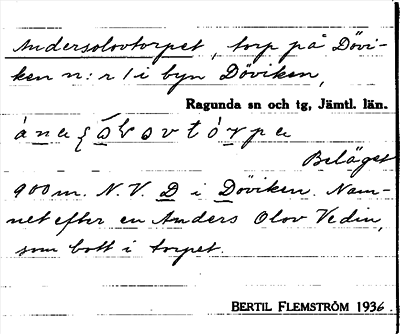 Andersolovtorpet, torp på Dövi-
ken n:r 1 i byn Döviken,
Ragunda sn och tg, Jämtl. län.
Beläget
900 m. N.V. D i Döviken. Nam-
net efter en Anders Olov Vedin,
som bott i torpet.
BERTIL FLEMSTRÖM 1936